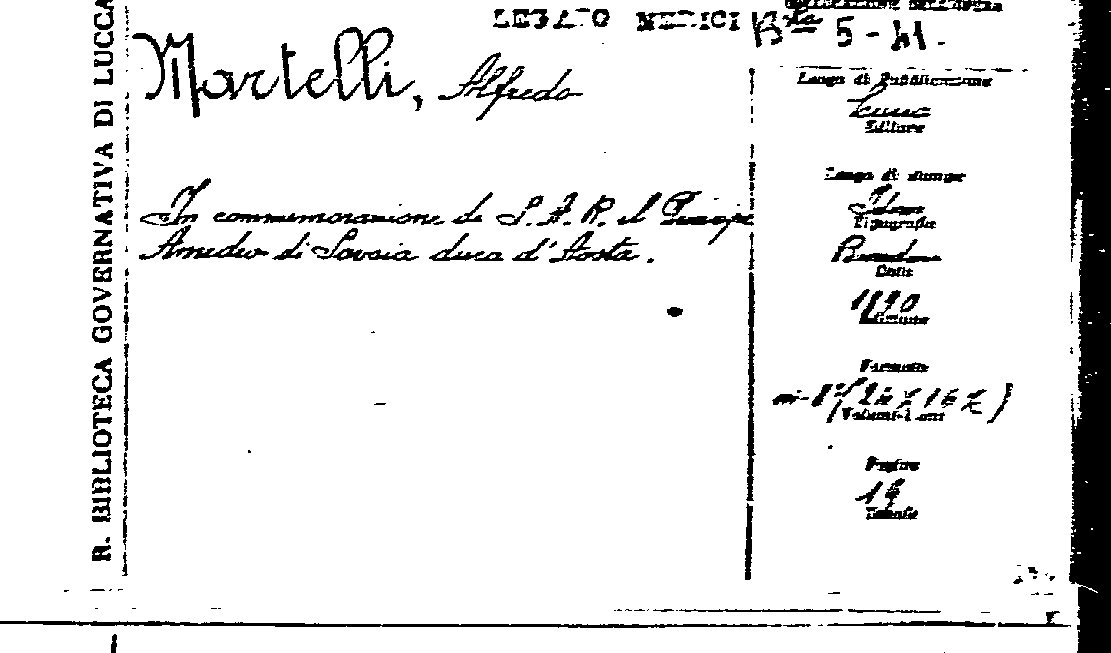 R. BIBLIOTECA GOVERNATIVA DI LUCCA
LEGATO MEDICI
Bta 5-41.
Martelli, Alfredo
In commemorazione di S. A. R. il Principe
Amedeo di Savoia duca d'Aosta.
Luogo di Pubblicazione
Editore
Luogo di stampa
Idem
Tipografia
Data
1890
Edizione
Formato
in-8°
Volumi
Pagine
Tavole